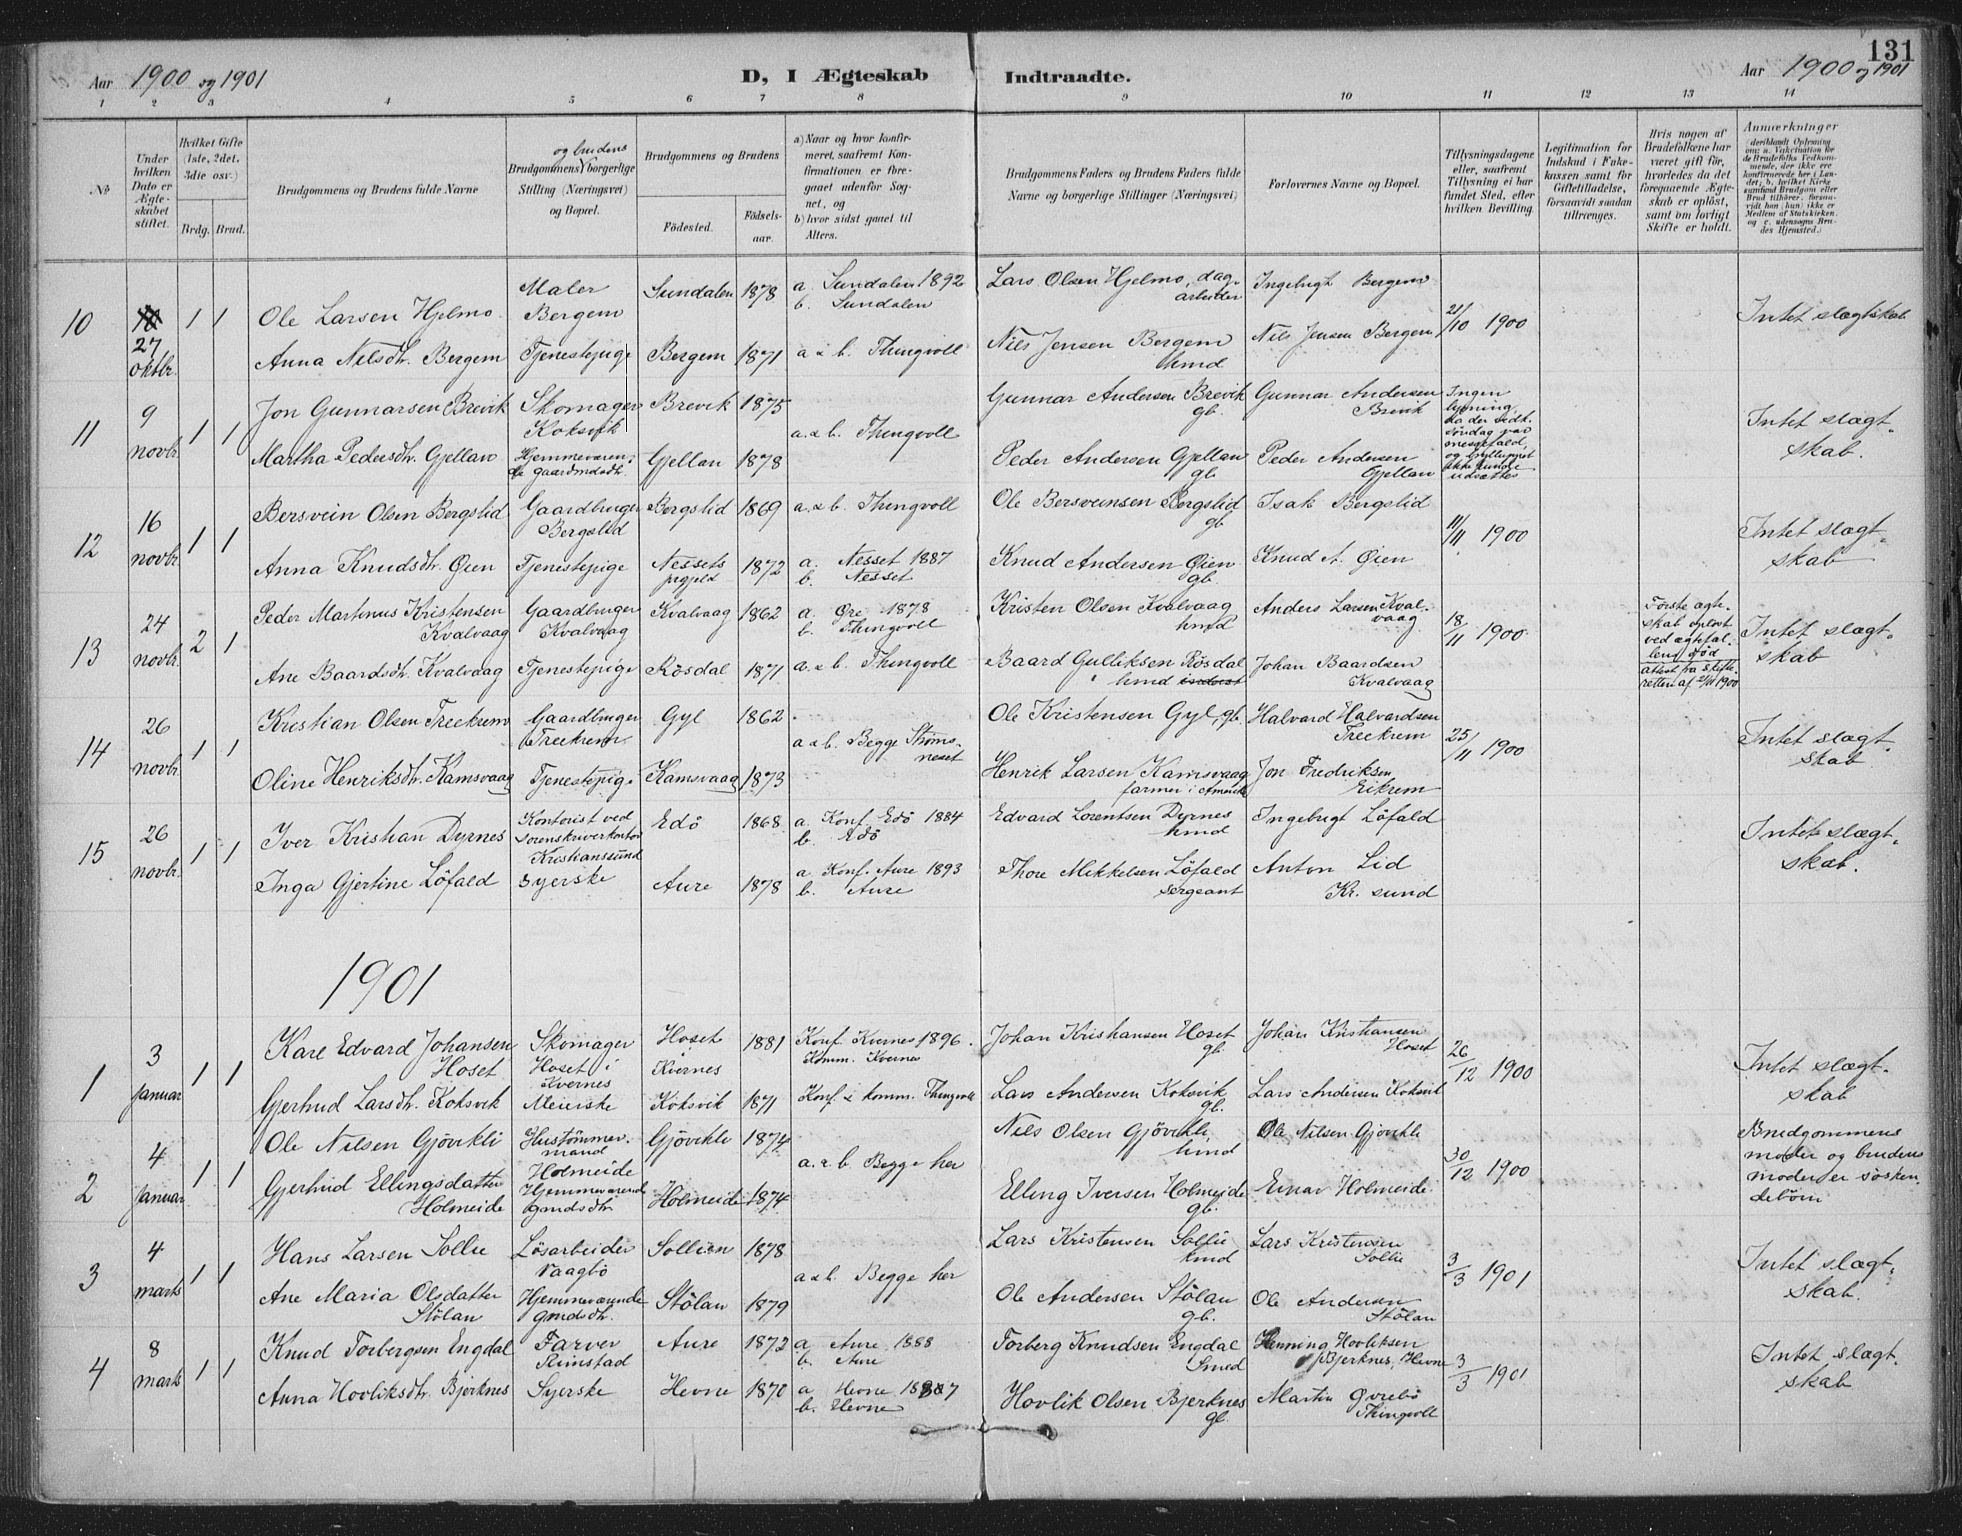 131
Aar 1900 og 1901
D, I Ægteskab Indtraadte.
Aar 1900 og 1901
1 2 3 4 5 6 7 8 9 10 11 12 13 14
No
Under hvilken Dato er Ægteskabet stiftet.
Hvilket Gifte (1ste, 2det, 3die osv.)
Brdg. Brud.
Brudgommens og Brudens fulde Navne
og brudens
Brudgommens borgerlige Stilling (Næringsvei) og Bopæl.
Brudgommens og Brudens
Fødested. Fødselsaar.
a) Naar og hvor konfirmeret, saafremt Konfirmationen er foregaaet udenfor Sognet, og
b) hvor sidst gaaet til Alters.
Brudgommens Faders og Brudens Faders fulde Navne og borgerlige Stillinger (Næringsvei)
Forlovernes Navne og Bopæl.
Tillysningsdagene eller, saafremt Tillysning ei har fundet Sted, efter hvilken Bevilling.
Legitimation for Indskud i Enkekassen samt for Giftetilladelse, forsaavidt saadan tiltrænges.
Hvis nogen af Brudefolkene har været gift før, hvorledes da det foregaaende Ægteskab er opløst, samt om lovligt Skifte er holdt.
Anmærkninger
(deriblandt Oplysning om: a. Vakcination for de Brudefolks Vedkommende, der ikke ere konfirmerede her i Landet; b. hvilket Kirkesamfund Brudgom eller Brud tilhører, forsaavidt han (hun) ikke er Medlem af Statskirken, og c. udensogns Brudes Hjemsted.)
10
27 oktbr.
1 1
Ole Larsen Hjelmo
Maler
Bergem
Sundalen 1878
a. Sundalen 1892
b. Sundalen
Lars Olsen Hjelmo, dagarbeider
Ingebrigt Bergem
21/10 1900
Intet slægtskab
Anna Nilsdtr. Bergem
Tjenestepige
Bergem 1871
a & b. Thingvoll
Nils Jensen Bergem
hmd
Nils Jensen Bergem
11
9 novbr.
1 1
Jon Gunnarsen Brevik
Skomager
Koksvik
Brevik 1875
a. & b. Thingvoll
Gunnar Andersen Brevik
gb.
Gunnar Andersen
Brevik
Ingen
lysning,
da der sidste
søndag var
messefald,
og bryllupet
ikke kunde
udsættes
Intet slægtskab.
Martha Pedersdtr. Gjellan
Hjemmeværende gaardmdsdtr.
Gjellan 1878
Peder Andersen Gjellan
gb.
Peder Andersen
Gjellan
12
16 novbr.
1 1
Bersvein Olsen Bergslid
Gaardbruger
Bergslid
Bergslid 1869
a. & b. Thingvoll
Ole Bersveinsen Bergslid
gb.
Isak Bergslid
11/11 1900
Intet slægtskab
Anna Knudsdtr. Øien
Tjenestepige
Nessets
prgjeld
1872
a. Nesset 1887
b. Nesset
Knud Andersen Øien
gb.
Knud A. Øien
13
24 novbr.
2 1
Peder Martinus Kristensen
Kvalvaag
Gaardbruger
Kvalvaag
Kvalvaag 1862
a. Øre 1878
b. Thingvoll
Kristen Olsen Kvalvaag
hmd
Anders Larsen Kvalvaag
18/11 1900
Første ægteskab opløst
ved ægtefællens død
attest fra skifteretten af 2/11 1900
Intet slægtskab
Ane Baardsdtr. Kvalvaag
Tjenestepige
Rösdal 1871
a. & b. Thingvoll
Baard Gulliksen Rösdal
hmd
Johan Baardsen
Kvalvaag
14
26 novbr.
1 1
Kristian Olsen Treekrem
Gaardbruger
Treekrem
Gyl 1862
a & b. Begge Strømsneset
Ole Kristensen Gyl, gb.
Halvard Halvardsen
Treekrem
25/11 1900
Intet slægtskab
Oline Henriksdtr. Kamsvaag
Tjenestepige
Kamsvaag 1873
Henrik Larsen Kamsvaag
farmer i Amerika
Jon Fredriksen
Eikrem
15
26 novbr.
1 1
Iver Kristian Dyrnes
Kontorist ved
sorenskriverkontoret
Kristianssund
Edö 1868
a. Konf. Edö 1884
b. Edö
Edvard Lorentsen Dyrnes
hmd
Ingebrigt Löfald
Intet slægtskab.
Inga Gjertine Löfald
Syerske
Aure 1878
a. Konf. Aure 1893
b. Aure
Thore Mikkelsen Löfald
sergeant
Anton Lid
Kr. sund
1901
1
3 januar
1 1
Kare Edvard Johansen
Hoset
Skomager
Hoset i
Kvernes
Hoset
Kvernes
1881
Konf. Kvernes 1896.
Komm. Kvernes
Johan Kristiansen Hoset
gb.
Johan Kristiansen
Hoset
26/12 1900
Intet slægtskab
Gjertrud Larsdtr. Koksvik
Meierske
Koksvik 1871
Konf. & komm. Thingvoll
Lars Andersen Koksvik
gb.
Lars Andersen Koksvik
2
4 januar
1 1
Ole Nilsen Gjövikli
Hustömmermand
Gjövikli 1874
a. & b. Begge her
Nils Olsen Gjövikli,
hmd
Ole Nilsen Gjövikli
30/12 1900
Brudgommens
moder og brudens
moder er söskendebörn
Gjertrud Ellingsdatter
Holmeide
Holmeide
Hjemmeværende
gmdsdtr.
Holmeide 1874
Elling Iversen Holmeide
gb.
Einar Holmeide.
3
4 marts
1 1
Hans Larsen Sollie
Lösarbeider
Vaagbö
Sollien 1878
a & b. Begge her
Lars Kristensen Sollie
hmd
Lars Kristensen
Sollie
3/3 1901
Intet slægtskab.
Ane Maria Olsdatter
Stölan
Hjemmeværende
gmdsdtr.
Stölan 1879
Ole Andersen Stölan
gb.
Ole Andersen
Stölan
4
8 marts
1 1
Knud Torbergsen Engdal
Farver
Rimstad
Aure 1872
a. Aure 1888
b. Aure
Torberg Knudsen Engdal
Smed
Henning Hovliksen
Bjerknes, Hevne
3/3 1901
Intet slægtskab
Anna Hovliksdtr. Bjerknes
Syerske
Hevne 1870
a. Hevne 1887
b. Hevne
Hovlik Olsen Bjerknes
gb.
Martin Øvrebö
Thingvoll